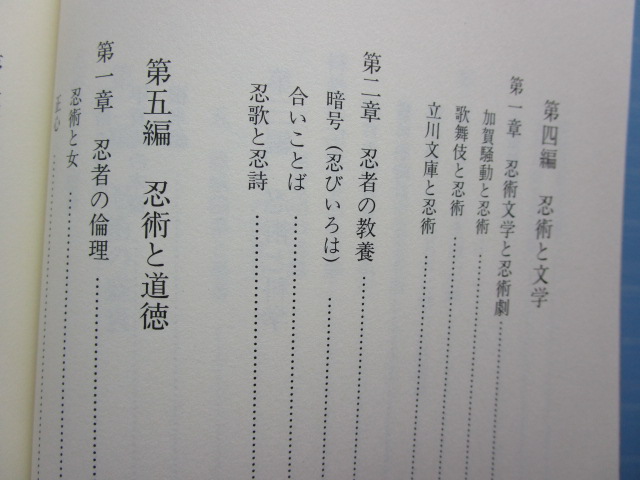 第四編　忍術と文学
第一章　忍術文学と忍術劇
加賀騒動と忍術
歌舞伎と忍術
立川文庫と忍術
第二章　忍者の教養
暗号（忍びいろは）
合いことば
忍歌と忍詩
第五編　忍術と道徳
第一章　忍者の倫理
忍術と女
正心